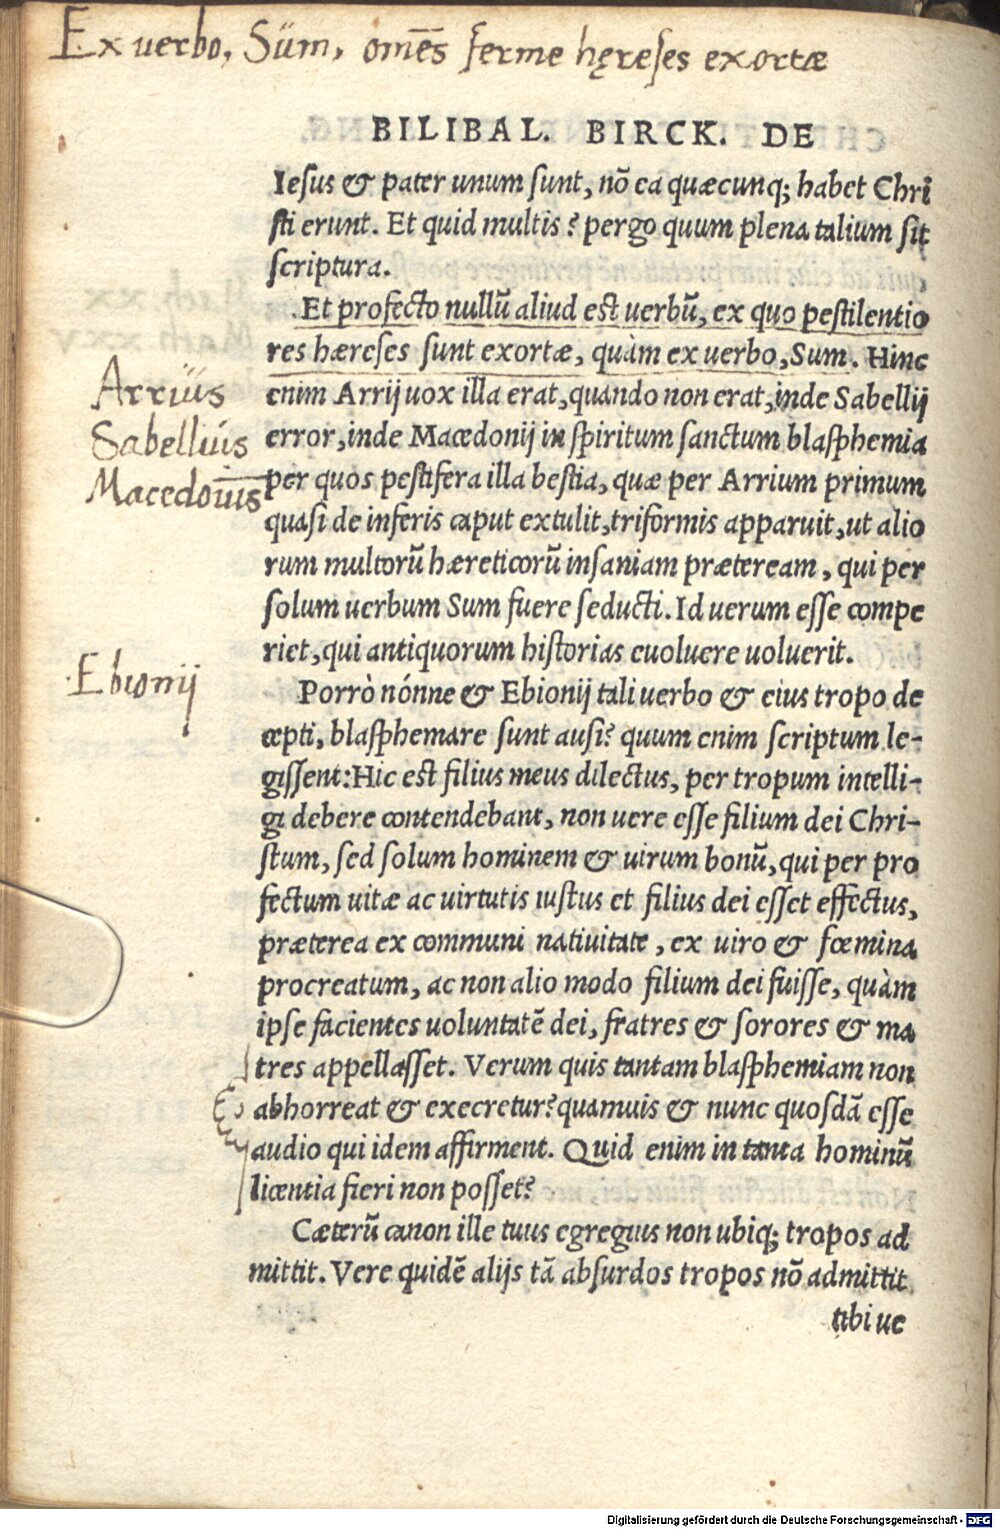 Ex verbo, Sūm, om̄es ferme hęreses exortæ
BILIBAL. BIRCK. DE
Iesus & pater unum sunt, nō ea quæcunq; habet Chri
sti erunt. Et quid multis? pergo quum plena talium sit
scriptura.
Et profecto nullū aliud est uerbū, ex quo pestilentio
res hæreses sunt exortæ, quàm ex uerbo, Sum. Hinc
Arrius
enim Arrij uox illa erat, quando non erat, inde Sabellij
Sabellius
error, inde Macedonij in spiritum sanctum blasphemia
Macedonius
per quos pestifera illa bestia, quæ per Arrium primum
quasi de inferis caput extulit, triformis apparuit, ut alio
rum multorū hæreticorū insaniam præteream, qui per
solum uerbum Sum fuere seducti. Id uerum esse compe
riet, qui antiquorum historias euoluere uoluerit.
Ebionij
Porrò nónne & Ebionij tali uerbo & eius tropo de
cepti, blasphemare sunt ausi? quum enim scriptum le-
gissent: Hic est filius meus dilectus, per tropum intelli-
gi debere contendebant, non uere esse filium dei Chri-
stum, sed solum hominem & uirum bonū, qui per pro
fectum uitæ ac uirtutis iustus et filius dei esset effectus,
præterea ex communi natiuitate, ex uiro & fœmina
procreatum, ac non alio modo filium dei fuisse, quàm
ipse facientes uoluntatē dei, fratres & sorores & ma
tres appellasset. Verum quis tantam blasphemiam non
abhorreat & execretur? quamuis & nunc quosdā esse
audio qui idem affirment. Quid enim in tanta hominū
licentia fieri non posset?
Cæterū canon ille tuus egregius non ubiq; tropos ad
mittit. Vere quidē alijs tā absurdos tropos nō admittit
tibi ue
Digitalisierung gefördert durch die Deutsche Forschungsgemeinschaft - DFG